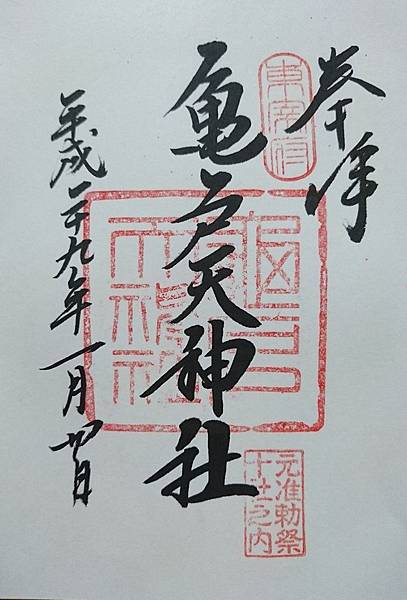 奉拝
東宰府
亀戸天神社
龜戸天神社
元准勅祭
十社之内
平成二十九年一月日